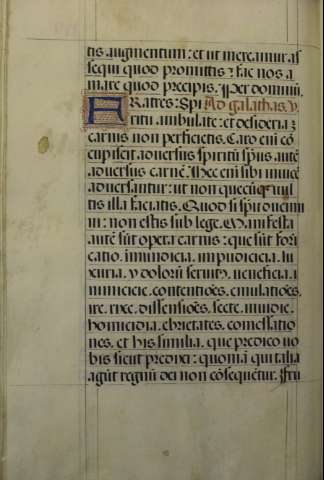 tis augmentum: et ut mereamur as
sequi quod promittis: fac nos a
mare quod precipis. Per dominū.
FRatres: Spi Ad galathas. v.
ritu ambulate: et desideria
carnis non perficietis. Caro eni cō
cupiscit adversus spiritū spūs autē
adversus carnē. Hec eni sibi invicē
adversantur: ut non quecūq vul
tis illa faciatis. Quod si spū ducimi
ni: non estis sub lege. Manifesta
autē sūt opera carnis: que sūt forni
catio. inmūdicia. impudicicia. lu
xuria. ydolorū servitus. veneficia. i
nimicicie. contentiōes. emulatiōes.
ire. rixe. dissensiōes. secte. invidie.
homicidia. ebrietates. comessatio
nes. et his similia. que predico vo
bis sicut predixi: quoniā qui talia
agūt regnū dei non cōsequētur. Fru